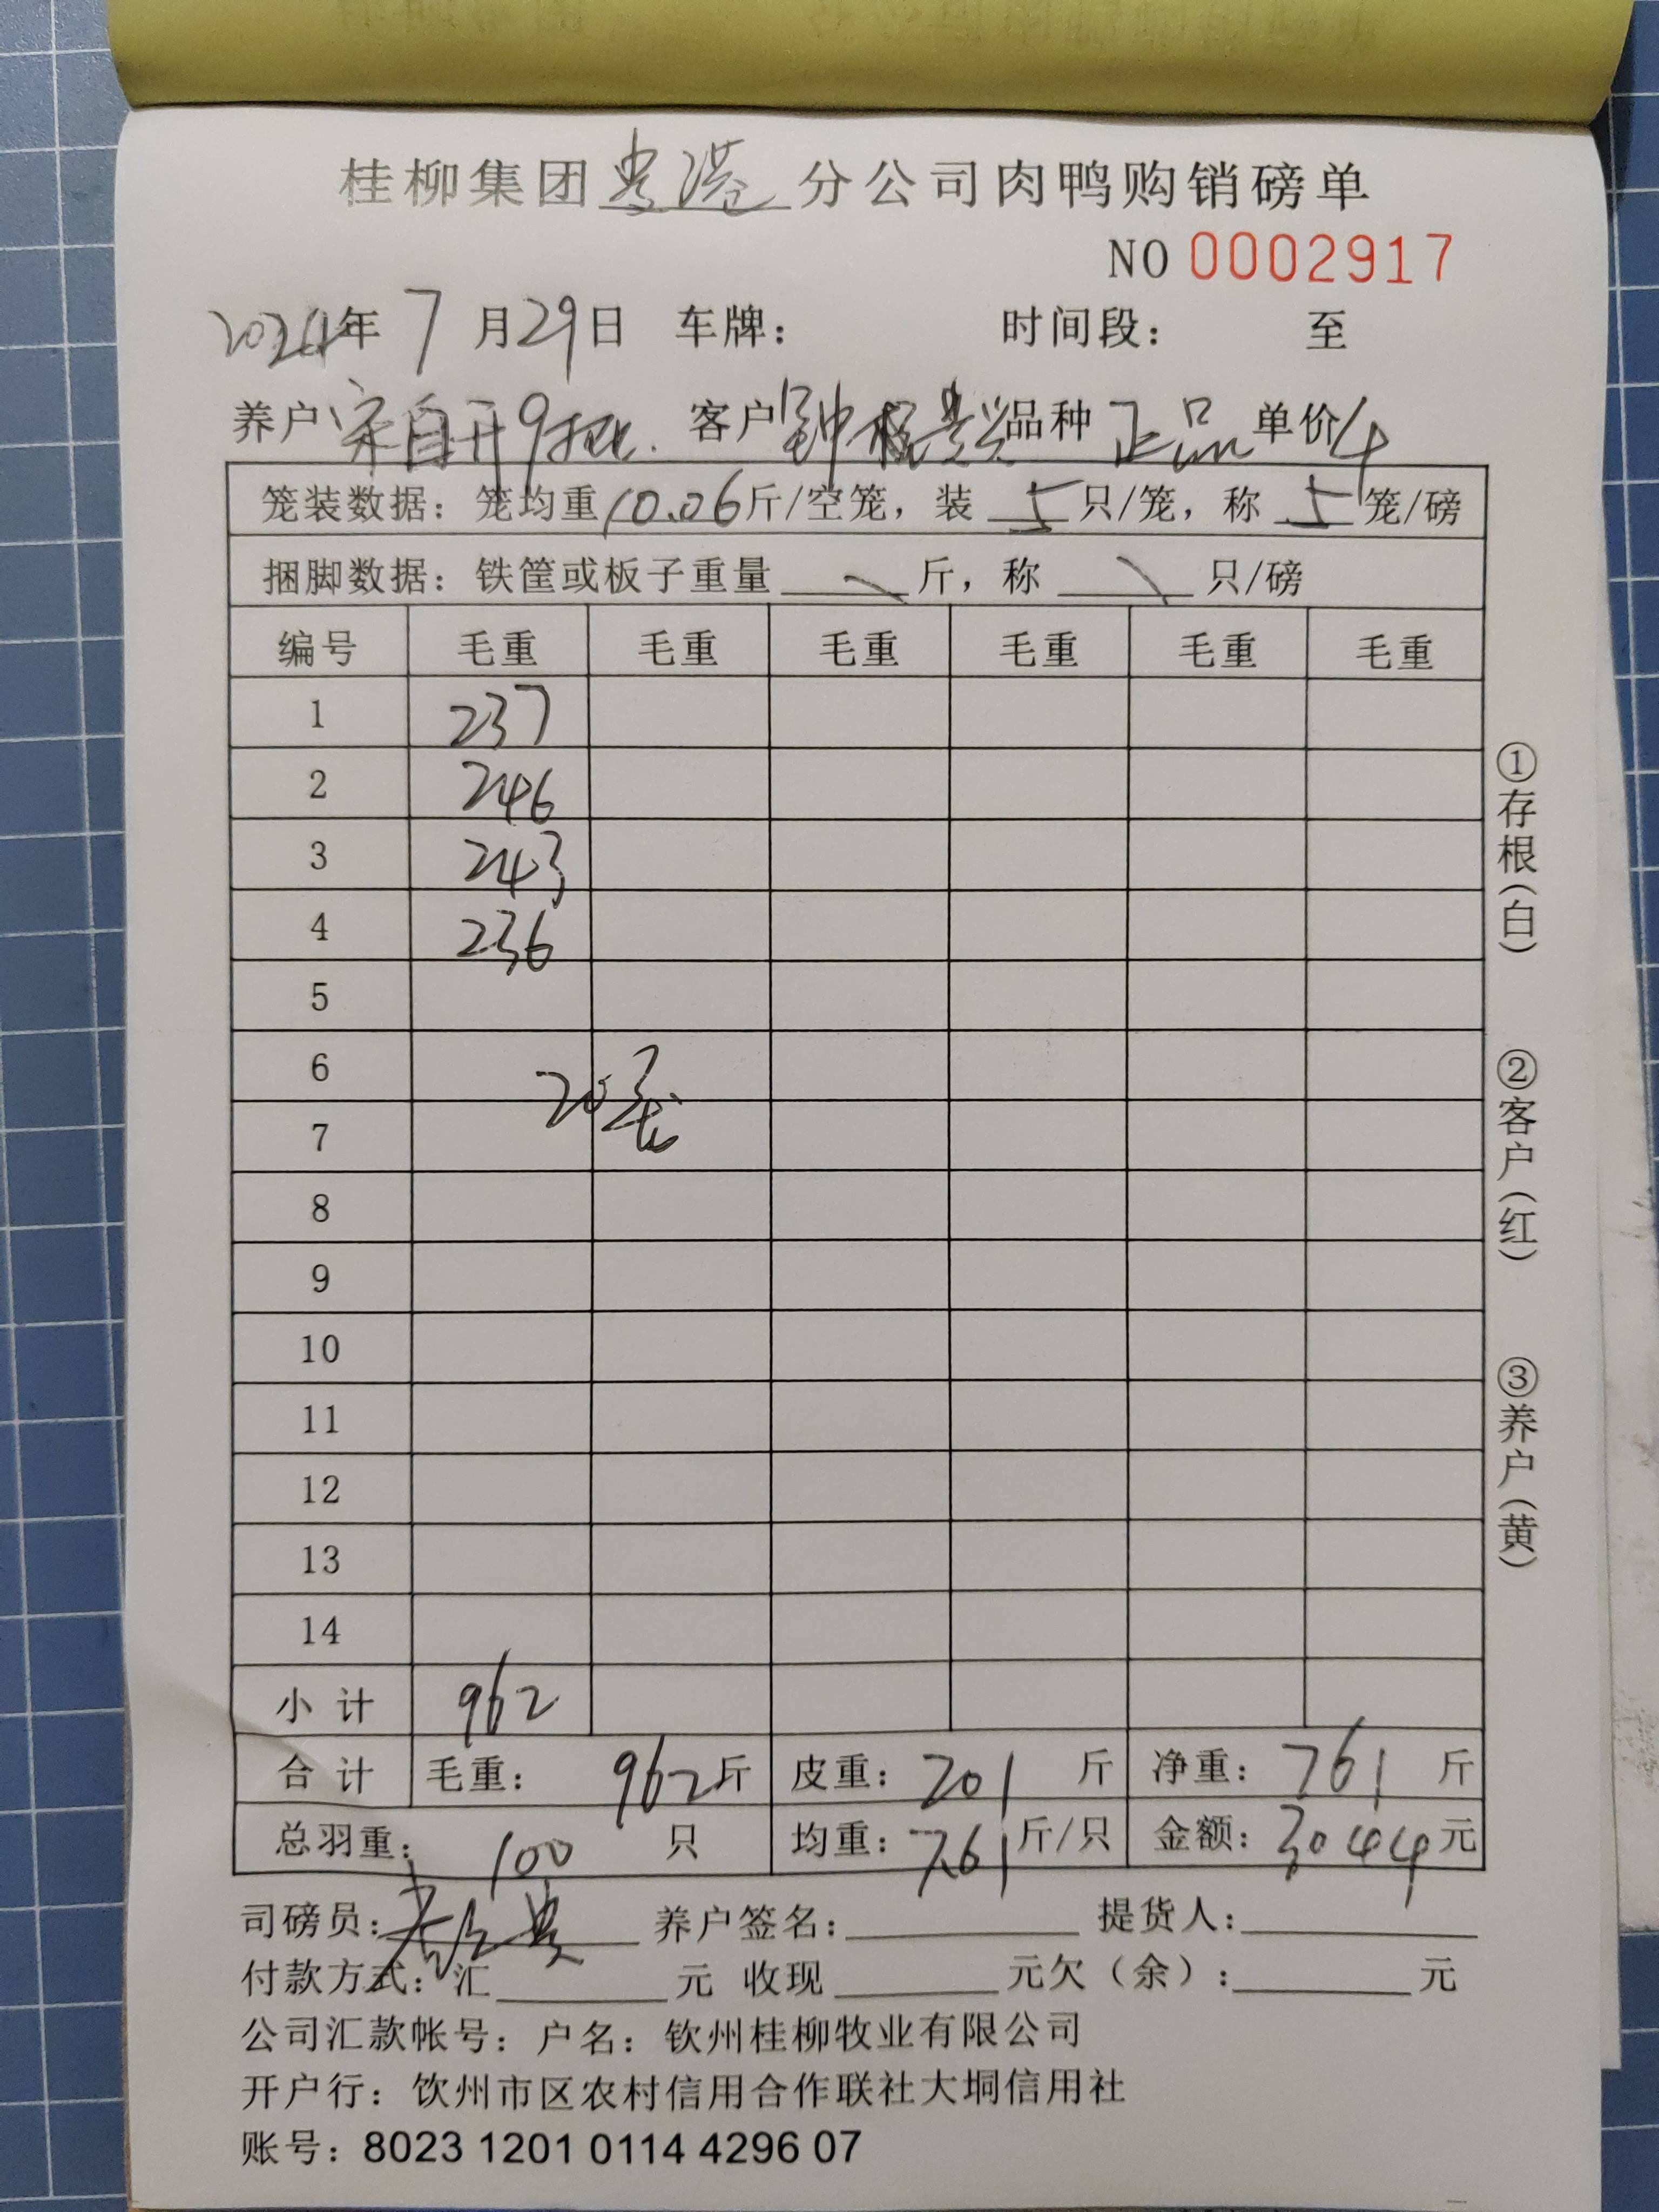 桂柳集团贵港分公司肉鸭购销磅单
NO 0002917
2024年7月29日 车牌: 时间段: 至
养户宋自开9批. 客户钟 品种正品 单价4
笼装数据: 笼均重10.06斤/空笼, 装5只/笼, 称5笼/磅
捆脚数据: 铁筐或板子重量 斤, 称 只/磅
编号 毛重 毛重 毛重 毛重 毛重 毛重
1 237
2 246
3 243
4 236
5
6
20毛
7
8
9
10
11
12
13
14
小计 962
合计 毛重: 962斤 皮重: 201斤 净重: 761斤
总羽重: 100只 均重: 7.61斤/只 金额: 3044元
司磅员: 养户签名: 提货人:
付款方式: 汇 元 收现 元欠(余): 元
公司汇款帐号: 户名: 钦州桂柳牧业有限公司
开户行: 饮州市区农村信用合作联社大垌信用社
账号: 8023 1201 0114 4296 07
①存根(白)
②客户(红)
③养户(黄)